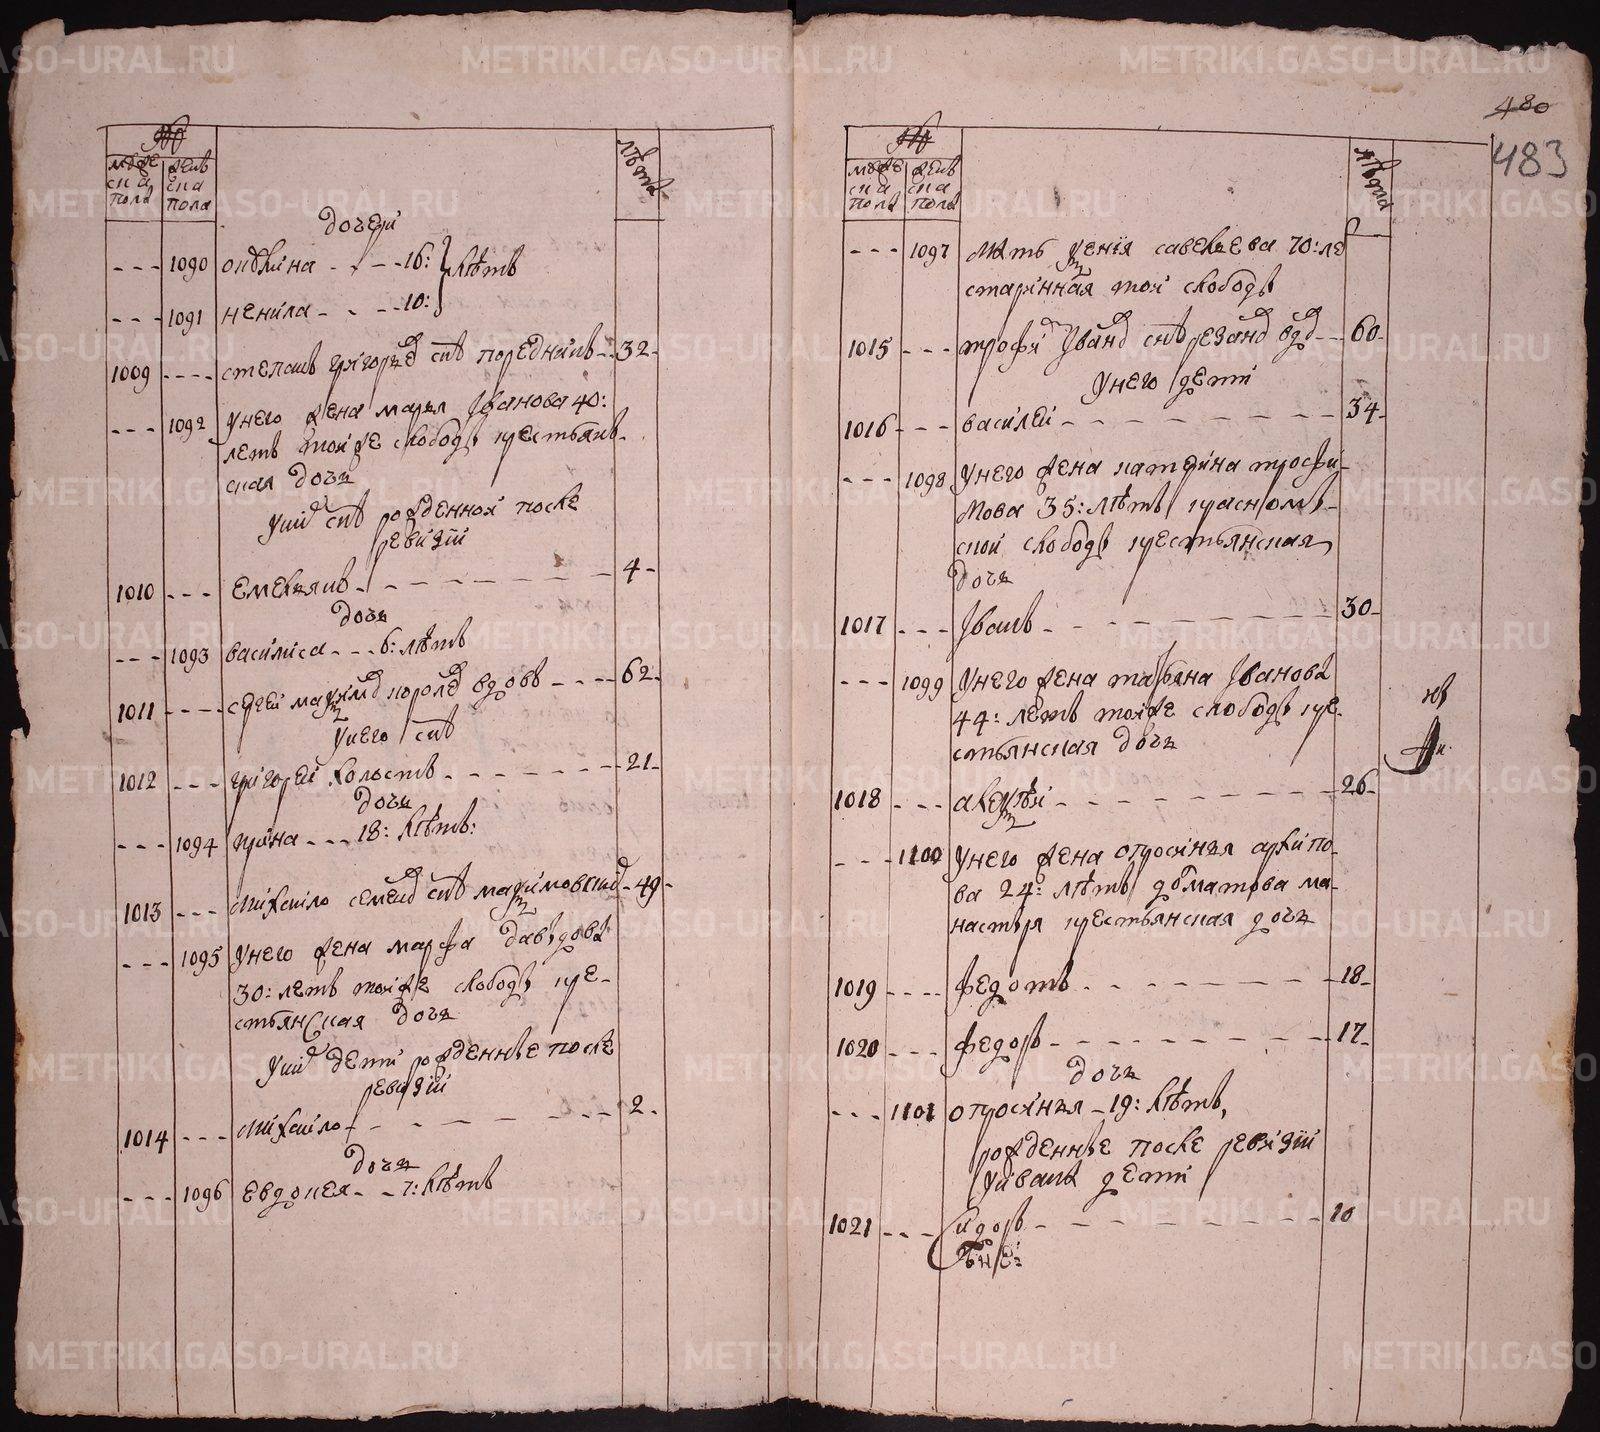 METRIKI.GASO-URAL.RU
480
483
№
муже
ска
полу
женс
ска
пола
лѣта
дочери
1090 овдкина 16: } лѣтъ
1091 ненила 10:
1009 степанъ григорьев снъ поредникъ 32
1092 у него жена марья Iванова 40:
летъ тойже слободы крестьян-
ская дочь
у них снъ рожденной после
ревизiи
1010 емельянъ 4
дочь
1093 василиса 6: лѣтъ
1011 сергей максимов королев вдовъ 62
у него снъ
1012 григорей холостъ 21
дочь
1094 ирина 18: лѣтъ:
1013 михаило семенов снъ максимовских 49
1095 у него жена марфа давыдова
30: летъ тойже слободы кре-
стьянская дочь
у них дети рожденные после
ревизiи
1014 михаило 2
дочь
1096 евдокея 7: лѣтъ
№
муже
ска
полу
женс
ска
полу
лѣта
1097 мать ксенiя савельева 70: ле
старинная той слободы
1015 трофим Iванов снъ резанов вдов 60
у него дети
1016 василей 34
1098 у него жена катерина трофи-
мова 35: лѣтъ красномы-
ской слободы крестьянская
дочь
1017 Iванъ 30
1099 у него жена татьяна Iванова
44: летъ тойже слободы кре-
стьянская дочь
1018 алексѣй 26
1100 у него жена опросинья архипо-
ва 24: лѣтъ долматова ма-
настыря крестьянская дочь
1019 федотъ 18
1020 федоръ 17
дочь
1101 опросинья 19: лѣтъ,
рожденные после ревизiи
у ивана дети
1021 сидоръ 10